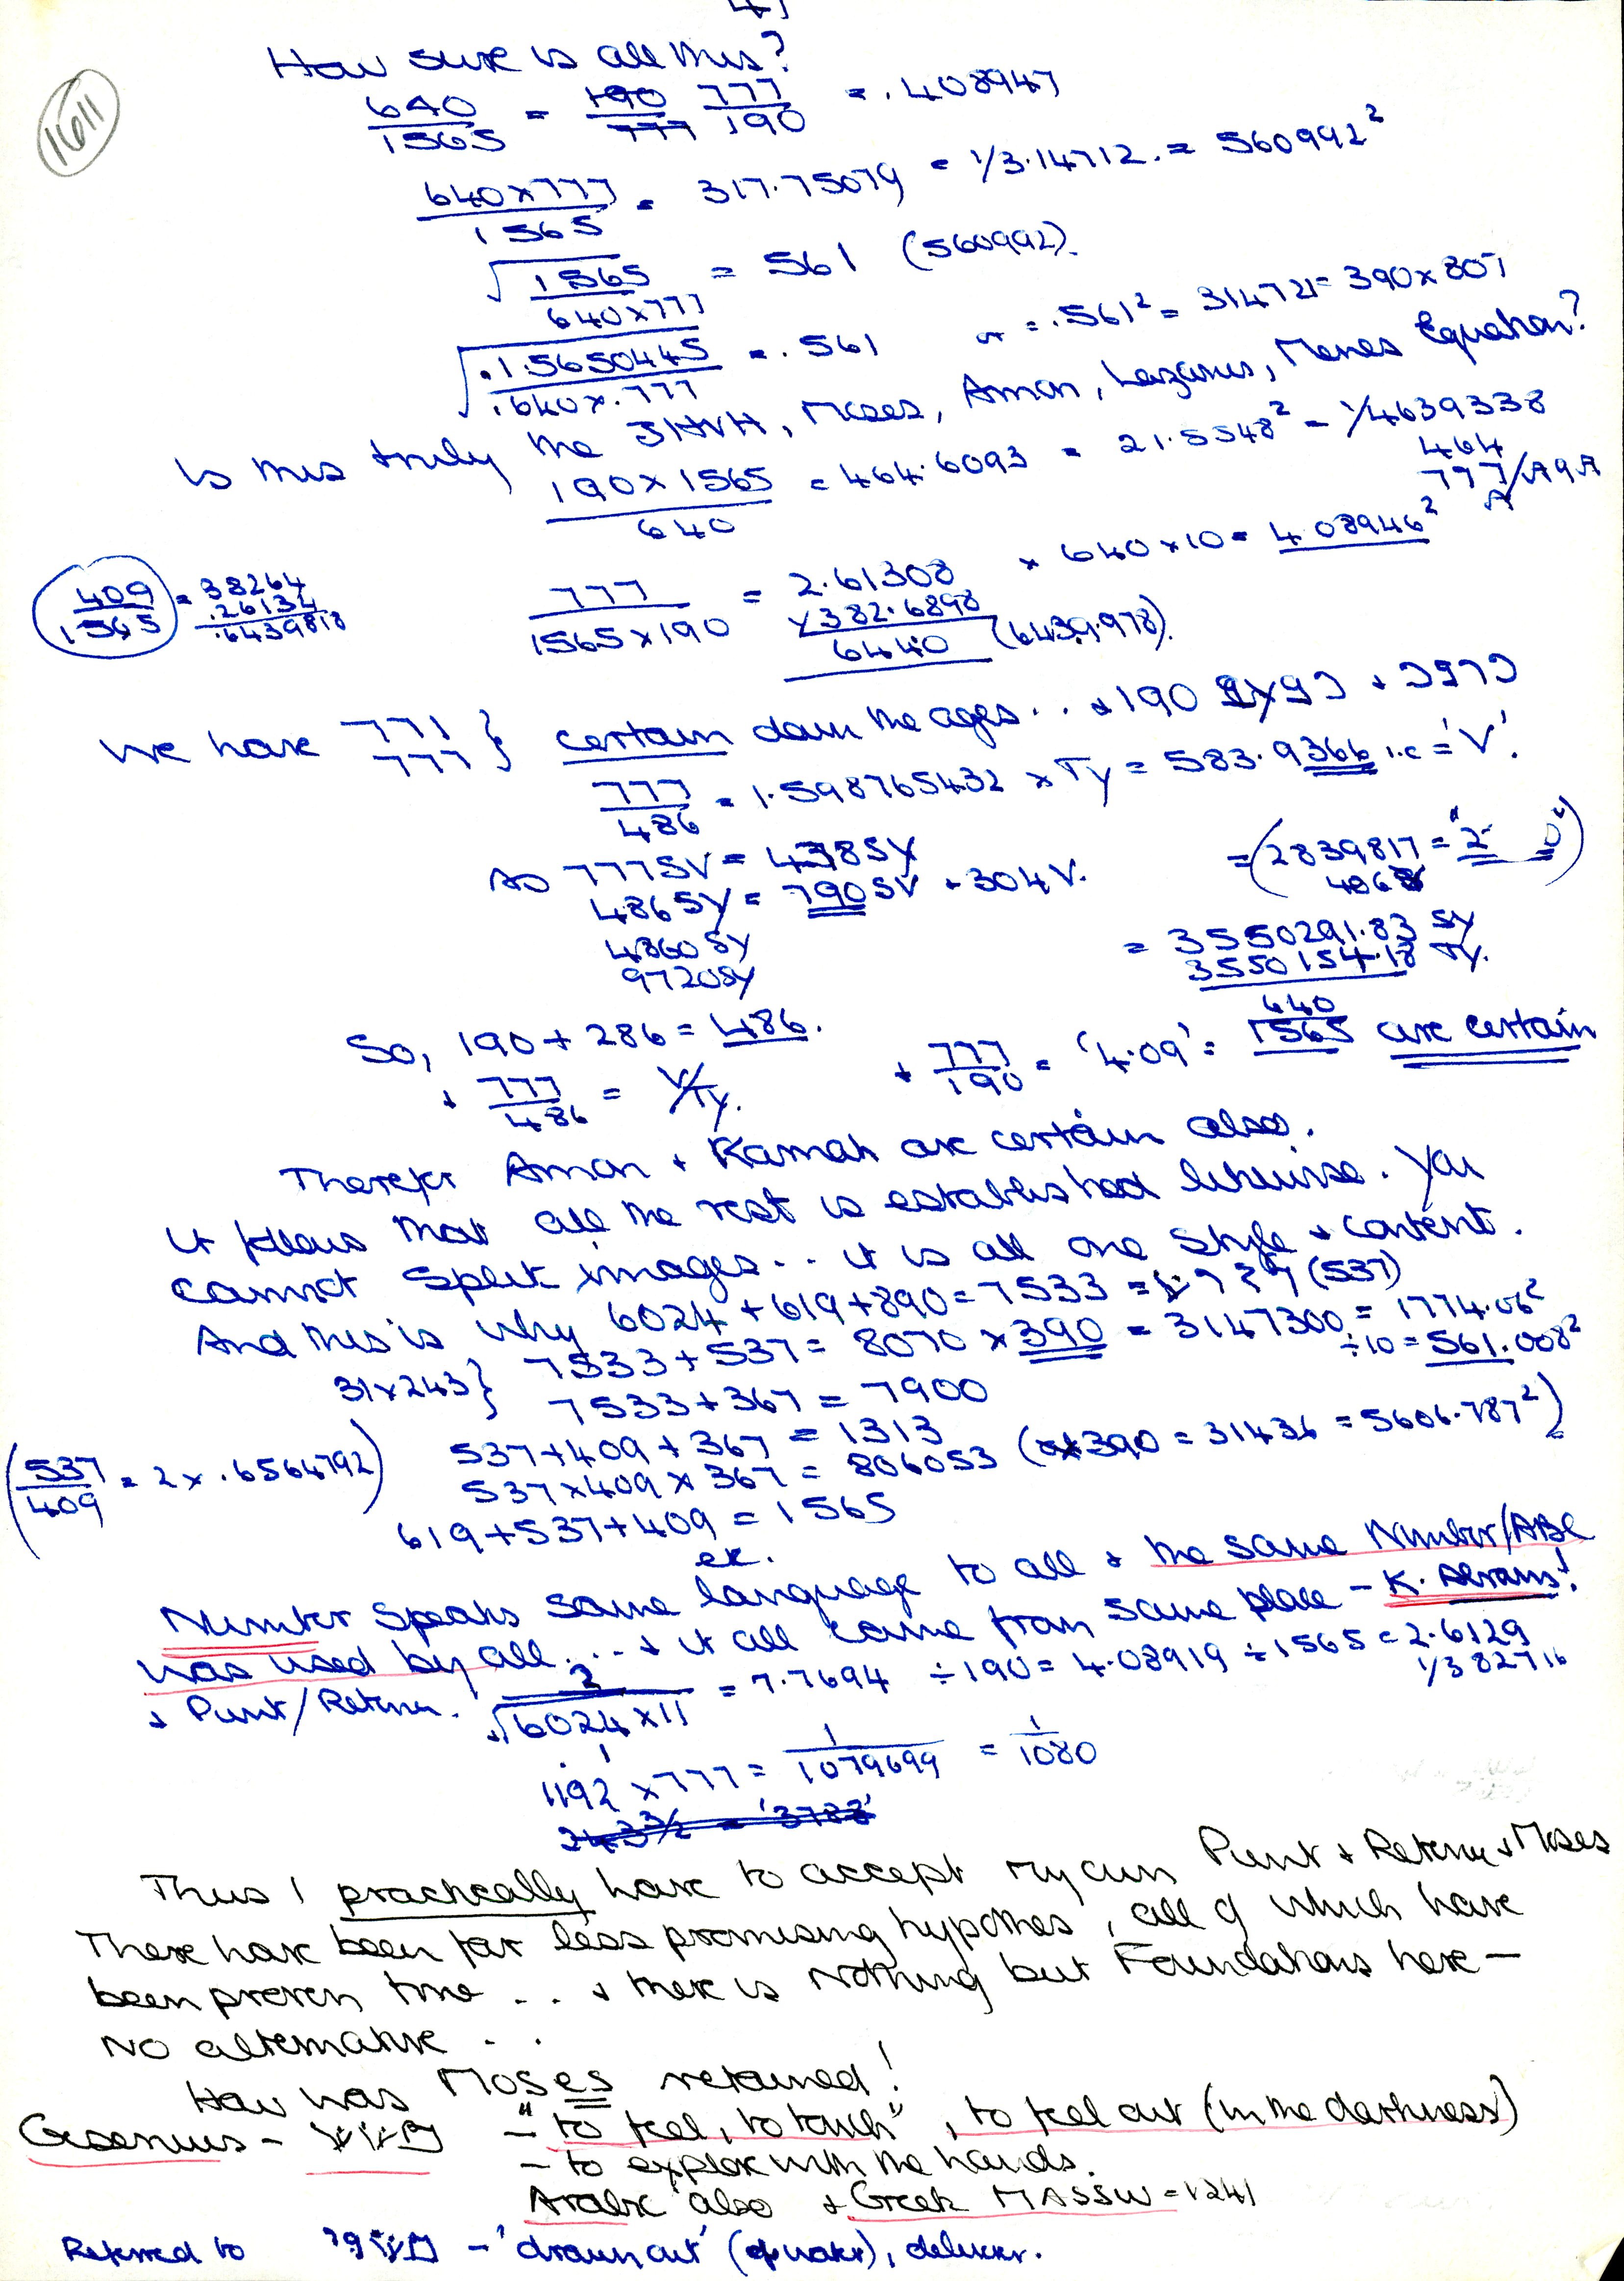 4]
1611
How sure is all this?
640/1565 = 190/777 777/190 = .408947
640x777/1565 = 317.75079 = 1/3.14712. = 560992²
√1565/640x777 = 561 (560992).
√.1.5650445/.640x.777 = .561 or = .561² = 314721 = 390x807
Is this truly the JHVH, Moses, Amon, Lazarus, Menes Equation?
190x1565/640 = 464.6093 = 21.5548² = 1/4639338
464
777/
409/1565 = 38264
.26134
.6439818
777/1565x190 = 2.61308 x 640x10 = 4.08946²
1/382.6898
6440 (6439.978).
We have 771 777 } certain down the ages... + 190
777/486 = 1.598765432 x Ty = 583.9366 i.e = 'V'.
So 777SV = 4378SY
486SY = 790SV + 304V.
= (2839817 = "2 0")
4068
4860SY
9720SY
= 3550291.83 SY
3550154.18 Ty.
So, 190 + 286 = 486.
+ 777/486 = V/Ty.
+ 777/190 = '4.09' = 640/1565 are certain
Therefor Amon + Kamah are certain also.
It follows that all the rest is established likewise. You
cannot split images... it is all one style + content.
And this is why 6024 + 619 + 890 = 7533 = (537)
31x243 } 7533 + 537 = 8070 x 390 = 3147300 = 1774.06²
÷10 = 561.008²
7533 + 367 = 7900
(537/409 = 2 x .6564792)
537 + 409 + 367 = 1313
537 x 409 x 367 = 806053 (x390 = 31436 = 5606.787²)
619 + 537 + 409 = 1565
etc.
Number speaks same language to all + the same Number/ABC
was used by all.... + it all came from same place - K. Abrams!
+ Punt/Return. 2/√6024x11 = 7.7694 ÷190 = 4.08919 ÷ 1565 = 2.6129
1/382716
1/1192 x 777 = 1/1079699 = 1/1080
243 3/2 = '3788'
Thus I practically have to accept my own Punt + Return + Moses
There have been far less promising hypothes', all of which have
been proven true... + there is Nothing but Foundations here -
No alternative...
How was Moses retained!
Gesenius - - "to feel, to touch", to feel out (in the darkness)
- to explore with the hands.
Arabic also + Greek MASSW = 1241
Referred to - 'drawn out' (of water), deliverer.